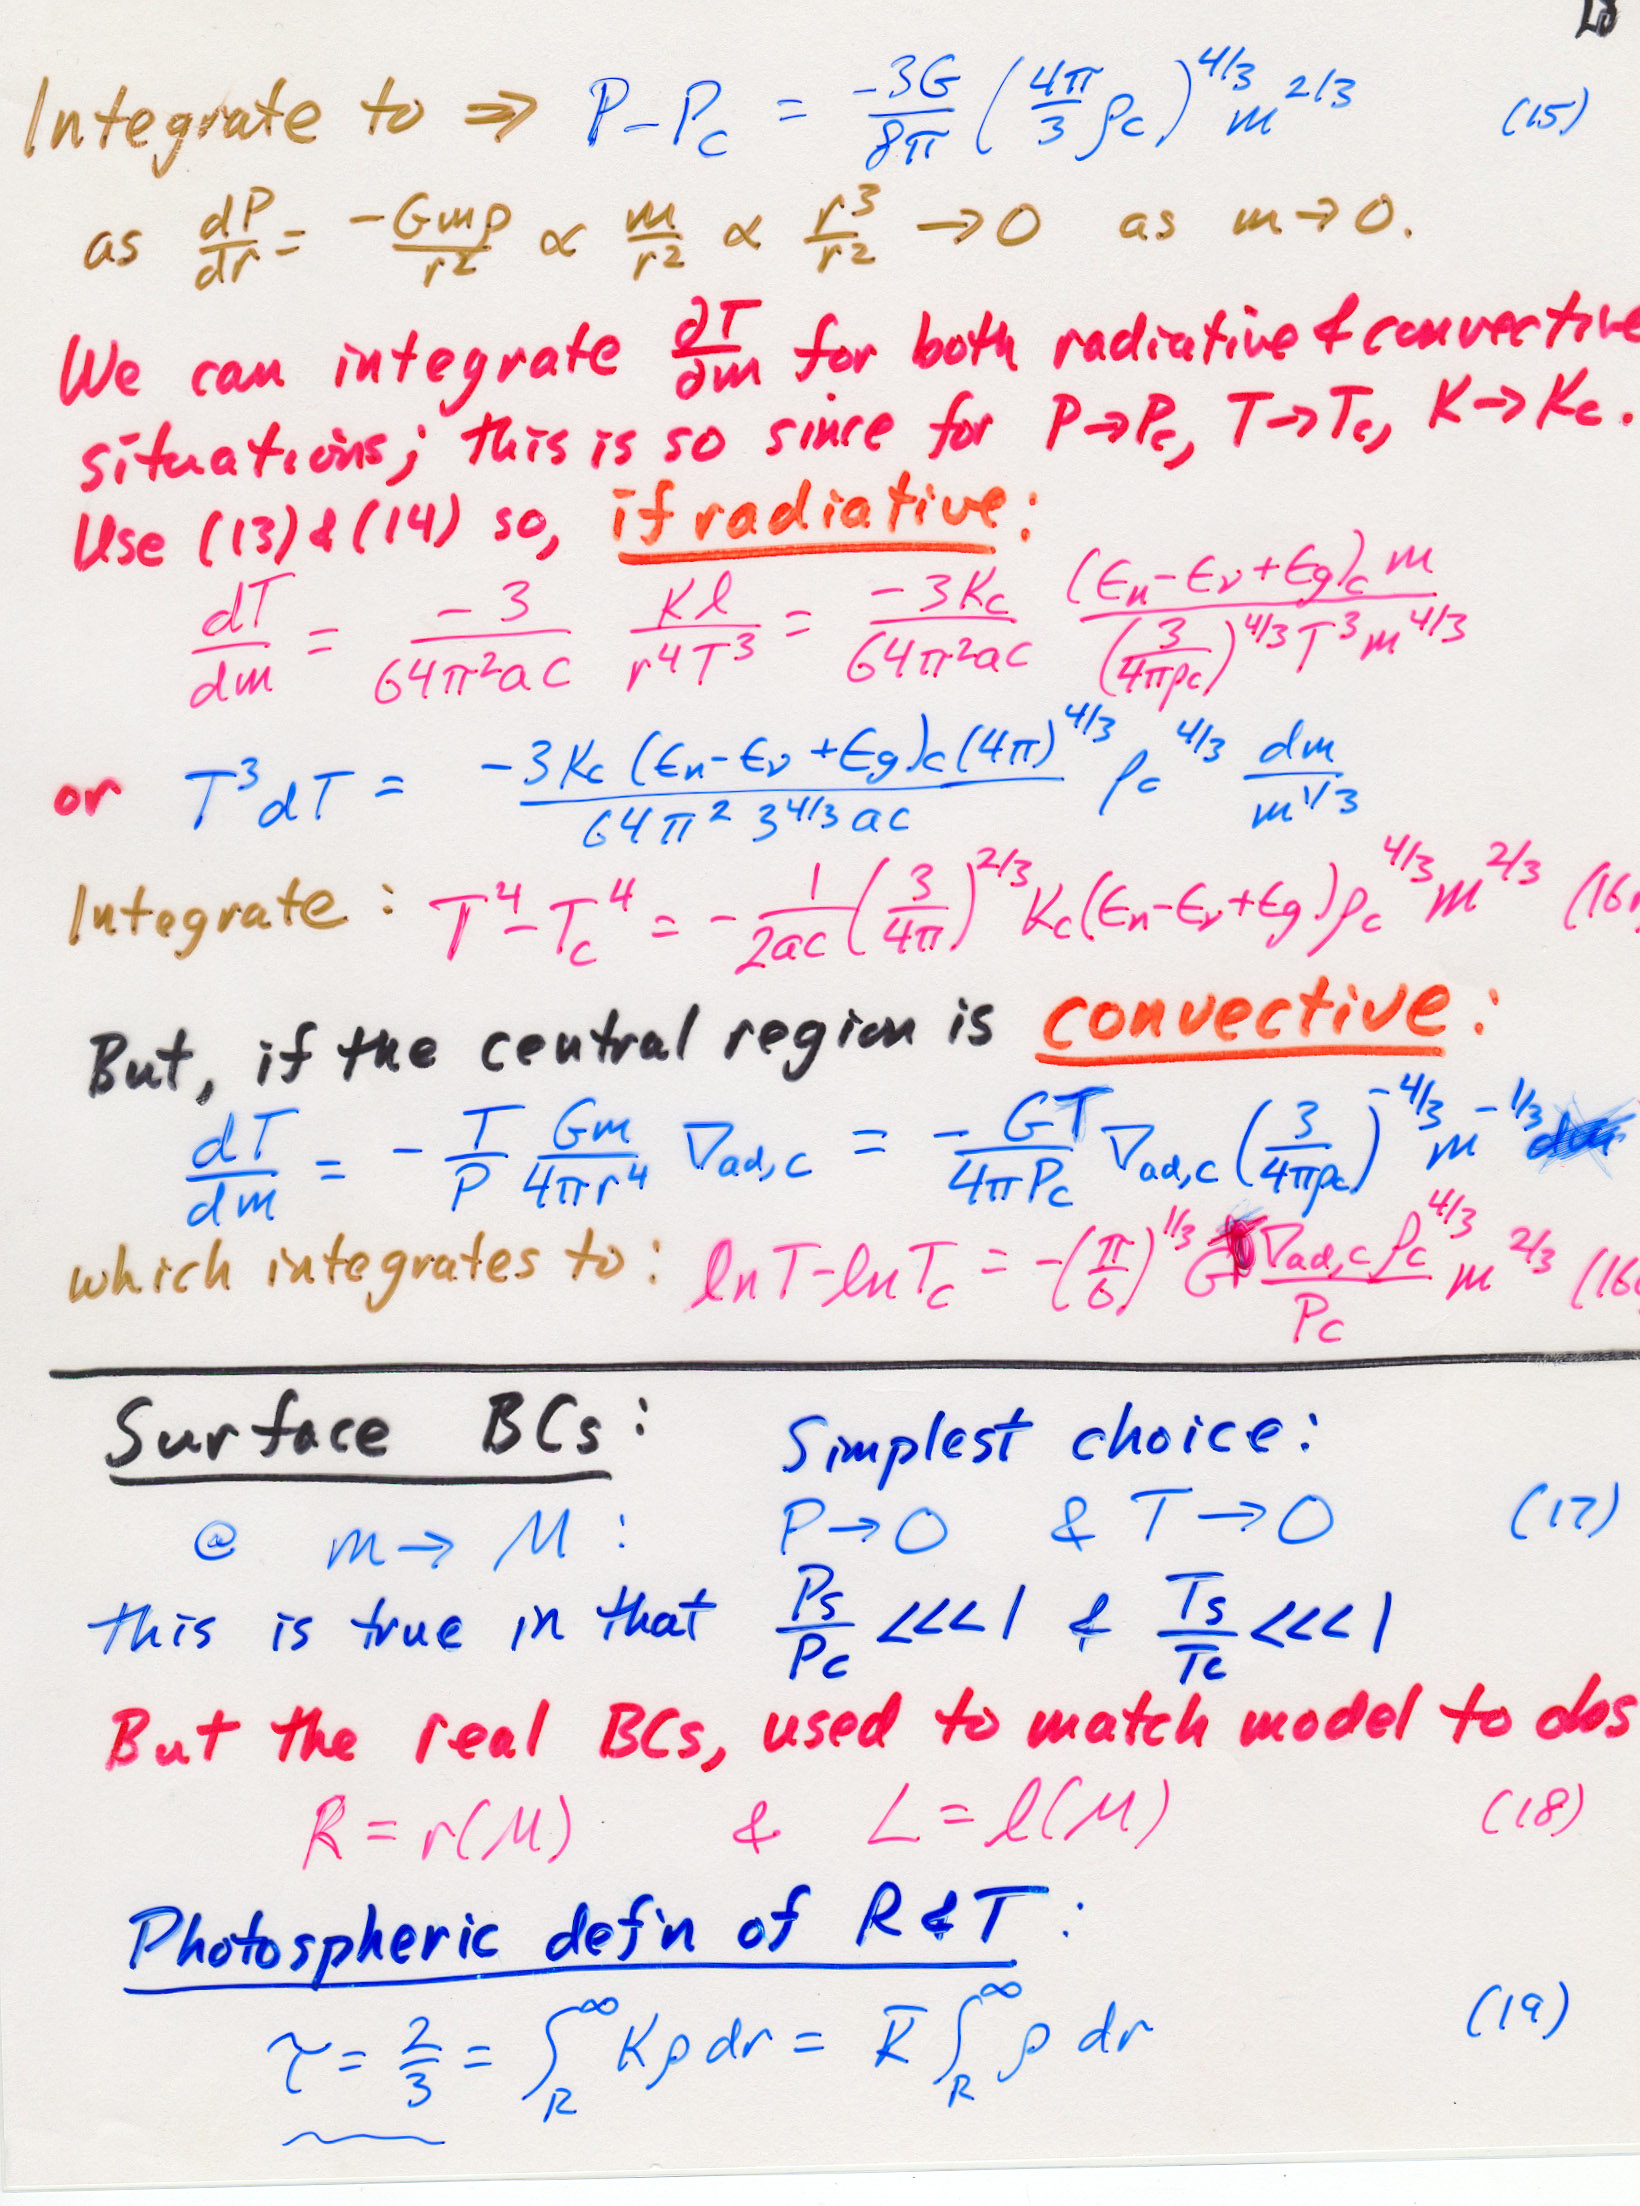 Integrate to ⇒ P - P_c = -3G/8π (4π/3 ρ_c)^4/3 m^2/3 (15)
as dP/dr = -Gmρ/r² ∝ m/r² ∝ r³/r² → 0 as m → 0.
We can integrate ∂T/∂m for both radiative & convective
situations; this is so since for P→P_c, T→T_c, K→K_c.
Use (13) & (14) so, if radiative:
dT/dm = -3/64π²ac Kl/r⁴T³ = -3K_c/64π²ac (ϵ_n-ϵ_ν+ϵ_g)_c m/(3/4πρ_c)^4/3 T³ m^4/3
or T³dT = -3K_c(ϵ_n-ϵ_ν+ϵ_g)_c(4π)^4/3/64π² 3^4/3 ac ρ_c^4/3 dm/m^1/3
Integrate: T⁴-T_c⁴ = -1/2ac (3/4π)^2/3 K_c(ϵ_n-ϵ_ν+ϵ_g)ρ_c^4/3 m^2/3 (16r
But, if the central region is convective:
dT/dm = -T/P Gm/4πr⁴ ∇_ad,c = -GT/4πP_c ∇_ad,c (3/4πρ_c)^-4/3 m^-1/3
which integrates to: lnT-lnT_c = -(π/6)^1/3 G ∇_ad,c ρ_c^4/3/P_c m^2/3 (16c
Surface BCs: Simplest choice:
@ m → M: P → 0 & T → 0 (17)
this is true in that P_s/P_c <<< 1 & T_s/T_c <<< 1
But the real BCs, used to match model to obs
R = r(M) & L = l(M) (18)
Photospheric defn of R & T:
τ = 2/3 = ∫_R^∞ Kρ dr = K̄ ∫_R^∞ ρ dr (19)